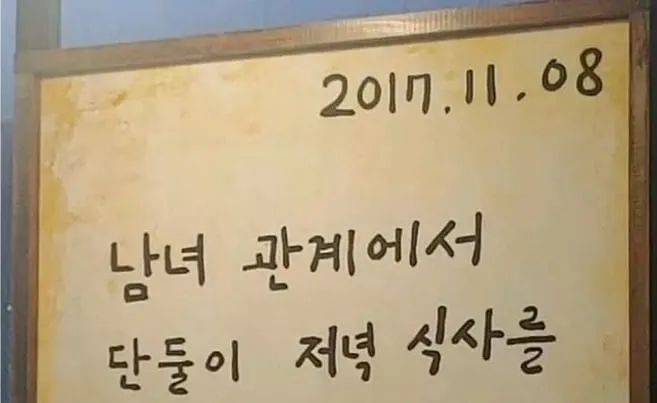 2017.11.08
남녀 관계에서
단둘이 저녁 식사를